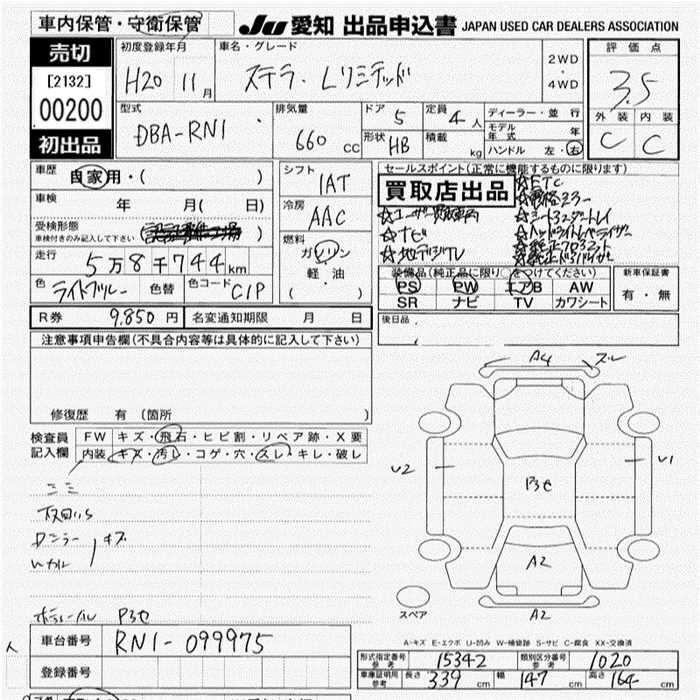 車内保管・守衛保管
JU 愛知 出品申込書 JAPAN USED CAR DEALERS ASSOCIATION
売切
[2132]
00200
初出品
初度登録年月
H20 11月
車名・グレード
ステラ・Lリミテッド
2WD
・
4WD
評価点
3.5
外装 内装
C C
型式
DBA-RN1
排気量
660 cc
ドア 5
形状 HB
定員 4人
積載 kg
ディーラー・並行
モデル年式 年
ハンドル 左・右
車歴
自家用・( )
車検
年 月( 日)
受検形態
車検付きのみ記入して下さい ( )
走行
5万8千744km
色 ライトブルー 色替 色コード C1P
シフト
1AT
冷房
AAC
燃料
ガソリン
軽油
( ・ )
セールスポイント(正常に機能するものに限ります)
買取店出品
☆ETC
☆ユーザー買取車両
☆ナビ
☆地デジTV
装備品(純正品に限り○をつけてください)
PS PW エアB AW
SR ナビ TV カワシート
新車保証書
有・無
R券 9,850円 名変通知期限 月 日
後日品
注意事項申告欄(不具合内容等は具体的に記入して下さい)
修復歴 有 (箇所 )
検査員
記入欄
FW キズ・飛石・ヒビ割・リペア跡・X要
内装 キズ・汚レ・コゲ・穴・スレ・キレ・破レ
Dミラー
キズ
P3セ
A4
スレ
U2
U1
P3セ
A2
A2
スペア
A-キズ E-エクボ U-凹み W-補修跡 S-サビ C-腐食 XX-交換済
車台番号 RN1-099975
登録番号
形式指定番号
参考
15342
類別区分番号
参考
1020
車庫証明用
参考
長さ 339 cm 幅 147 cm 高さ 164 cm